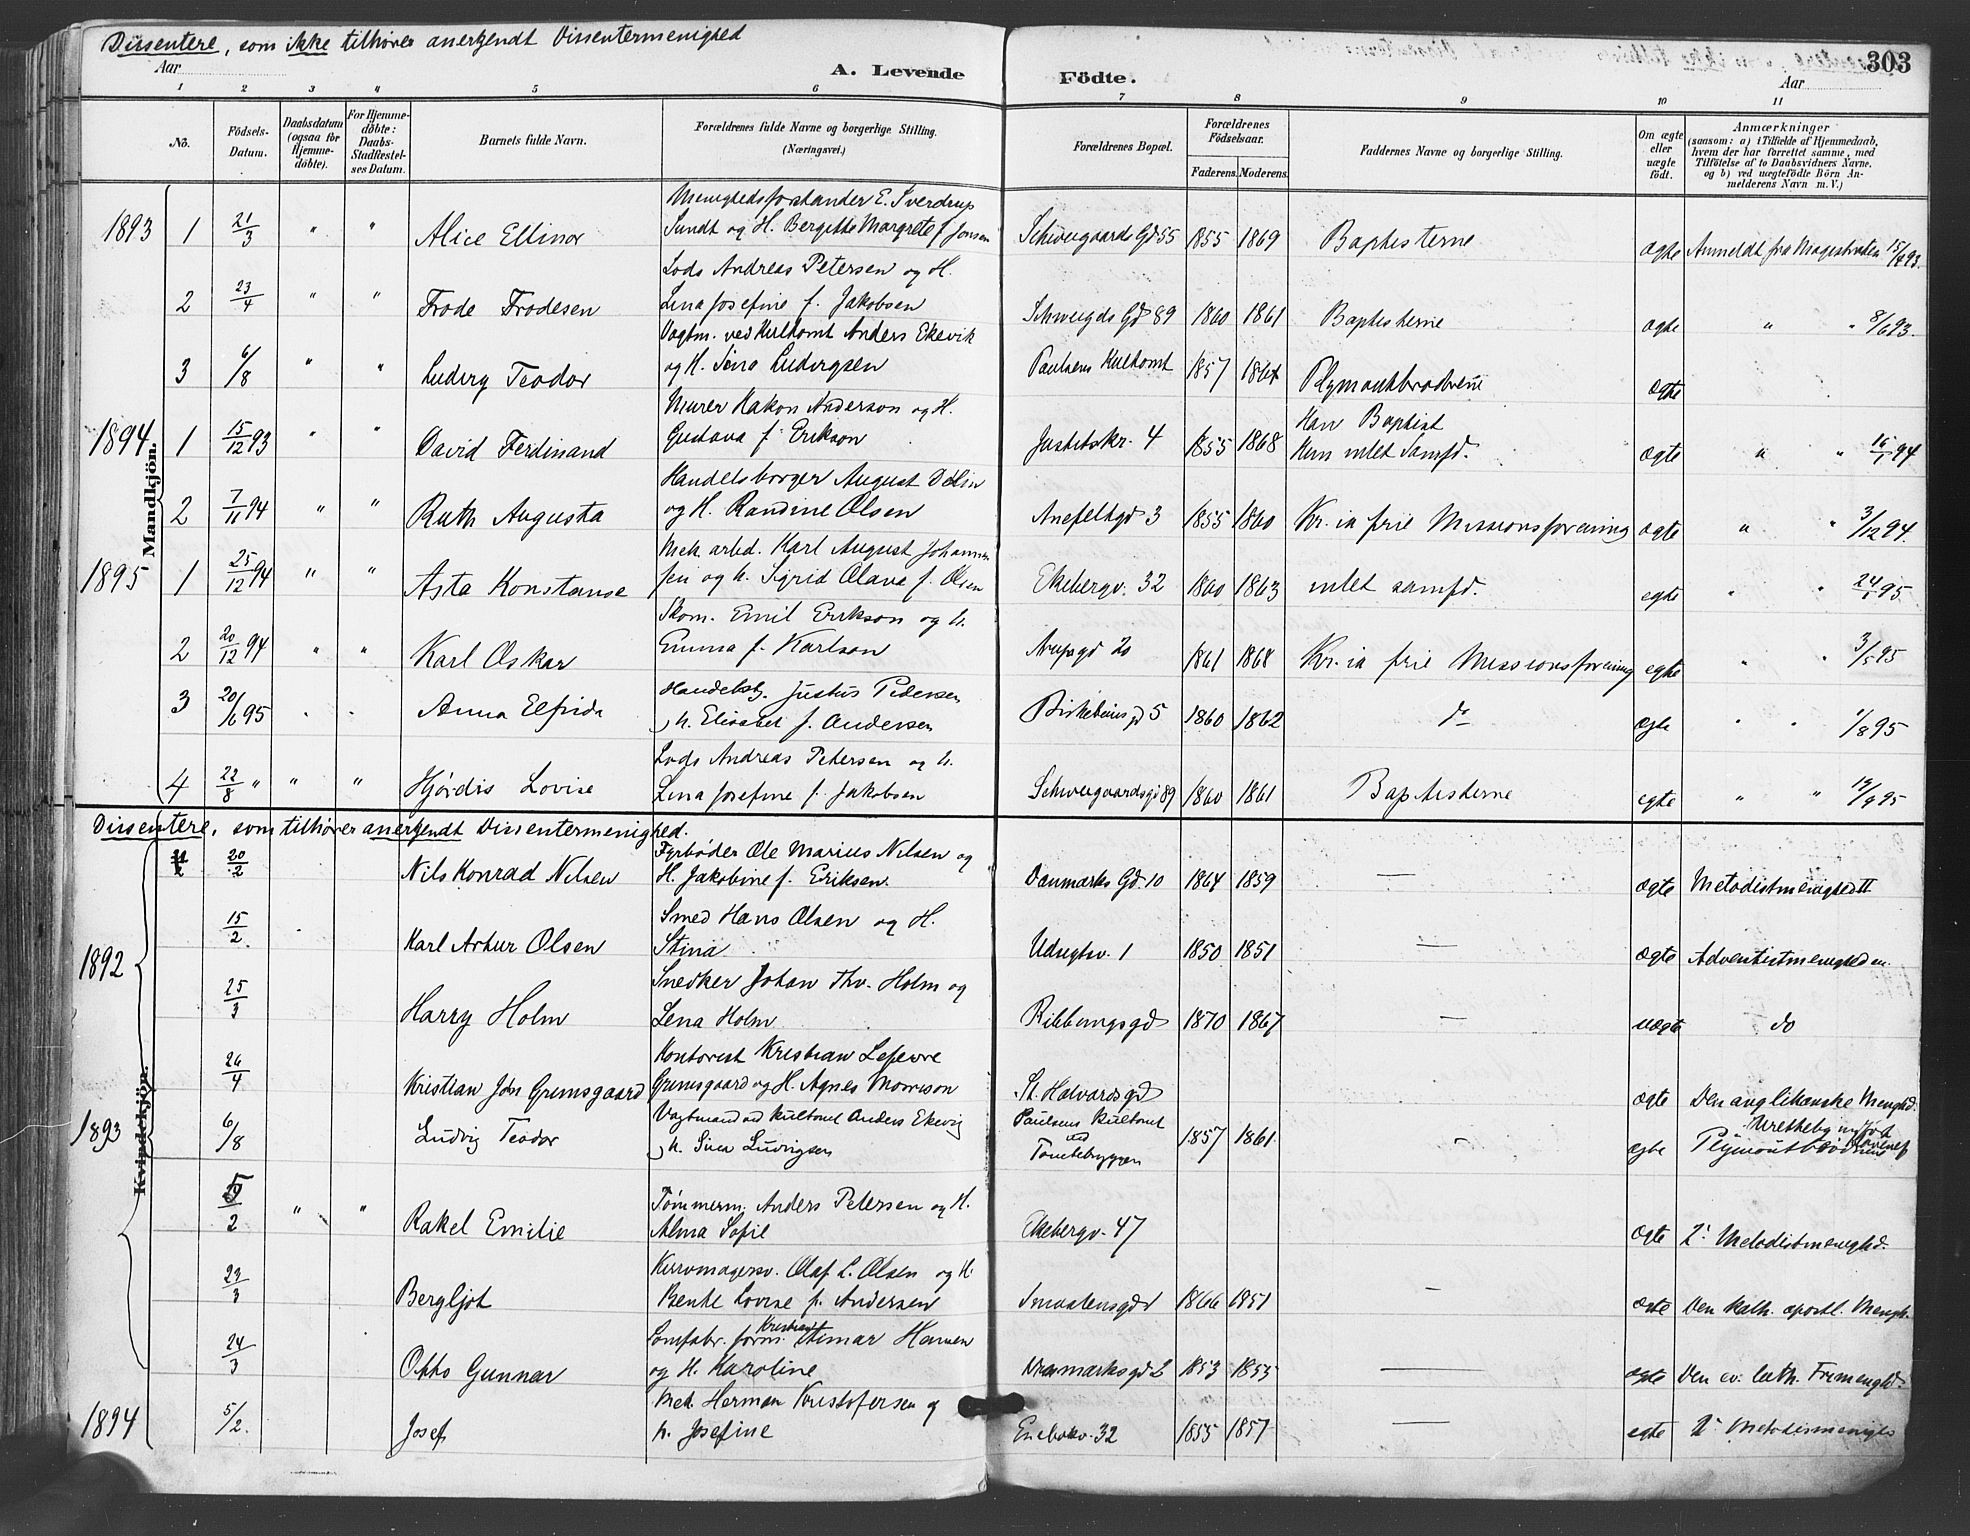 Dissentere, som ikke tilhører anerkjendt Dissentermenighed
303
Aar
A. Levende Födte.
Aar
1 2 3 4 5 6 7 8 9 10 11
No. Födsels-Datum. Daabsdatum (ogsaa for Hjemme-döbte). For Hjemme-döbte: Daabs-Stadfæstel-ses Datum. Barnets fulde Navn. Forældrenes fulde Navne og borgerlige Stilling. (Næringsvei.) Forældrenes Bopæl. Forældrenes Födselsaar. Faderens. Moderens. Faddernes Navne og borgerlige Stilling. Om ægte eller uægte födt. Anmærkninger (saasom: a) i Tilfælde af Hjemmedaab, hvem der har forrettet samme, med Tilföielse af to Daabsvidners Navne. og b) ved uægtefödte Börn Anmelderens Navn m. V.)
Mandkjön.
Menighedsforstander E. Sverdrup
1893 1 21/3 " " Alice Ellinor Sundt og H. Bergitte Margrete f. Jonsen Schweigaards Gd 55 1855 1869 Baptisterne ægte Anmeldt fra Magistraten 15/4 93.
Lods Andreas Petersen og H.
2 23/4 " " Frode Frodesen Lina Josefine f. Jakobsen Schweigds Gd 89 1860 1861 Baptisterne ægte " " 8/6 93.
Vagtm. ved Kulkomt Anders Ekevik
3 6/8 " " Ludvig Teodor og H. Sina Ludvigsen Paulsens Kulkomt 1857 1861 Plymouthbrødrene ægte
Murer Hakon Anderson og H.
1894 1 15/12 93 " " David Ferdinand Gustava f. Erikson Justitskr. 4 1855 1868 Han Baptist
Hun intet Samfd. ægte " " 16/1 94
Handelsborger August Dølin
2 7/11 94 " " Ruth Augusta og H. Randine Olsen Anefeltgd 3 1855 1860 Kr.ia frie Missionsforening ægte " " 3/12 94.
Mek. arbd. Karl August Johannes
1895 1 25/12 94 " " Asta Konstanse sen og h. Sigrid Olava f. Olsen Ekebergv. 32 1860 1863 intet samfd. egte " " 24/1 95.
Skom. Emil Erikson og h.
2 20/12 94 " " Karl Oskar Emma f. Karlson Arupsgd 20 1861 1868 Kr.ia frie Missionsforening egte " " 3/5 95
Handelsb. Justus Pedersen
3 20/6 95 Anna Elfrida h. Elisabet f. Andersen Birkebeinsgd 5 1860 1862 do ægte " " 1/8 95
Lods Andreas Petersen og h.
4 22/8 " " " Hjørdis Lovise Lina Josefine f. Jakobsen Schweigaardsgd 89 1860 1861 Baptisterne egte " " 19/9 95
Dissentere, som tilhører anerkjendt Dissentermenighed.
Kvindekjön.
Fyrbøder Ole Marius Nilsen og
20/2 Nils Konrad Nilsen H. Jakobine f. Eriksen. Danmarks Gd. 10 1864 1859 — ægte Metodistmenighed II
Smed Hans Olsen og H.
1892 15/2 Karl Artur Olsen Stina Udsigtsv. 1 1850 1851 — ægte Adventistmenigheden.
Snedker Johan Thv. Holm og
25/3 Harry Holm Lena Holm Ribbungsgd 1870 1867 — uægte do
Kontorist Kristian Lefevre
26/4 Kristian Jón Grimsgaard Grimsgaard og H. Agnes Morrison St. Halvardsgd ægte Den anglikanske Menghd.
1893 6/8 Ludvig Teodor Vagtmand ved Kulkomt Anders Ekevig
h. Sina Ludvigsen Paulsens Kulkomt
ved
Tomtebryggen 1857 1861 egte Urettelig indført
Plymouthbrødrene
2 " " Rakel Emilie Tømmerm. Anders Petersen og H.
Alma Sofie Ekebergv. 47 ægte 2. Metodistmenighd.
23/3 Bergljot Kurvmagersv. Olaf L. Olsen og H.
Bente Lovise f. Andersen Smaalensgd 1866 1851 — ægte Den kath. apostl. Menghd.
24/3 Otto Gunnar Kristian
og H. Karoline Danmarksgd 2 1853 1853 — egte Den ev. luth. Frimenghd.
1894 5/2. Josef Mek. Herman Kristofersen og
h. Josefine Enebakv. 32 1855 1857 — egte 2. Metodismenighd